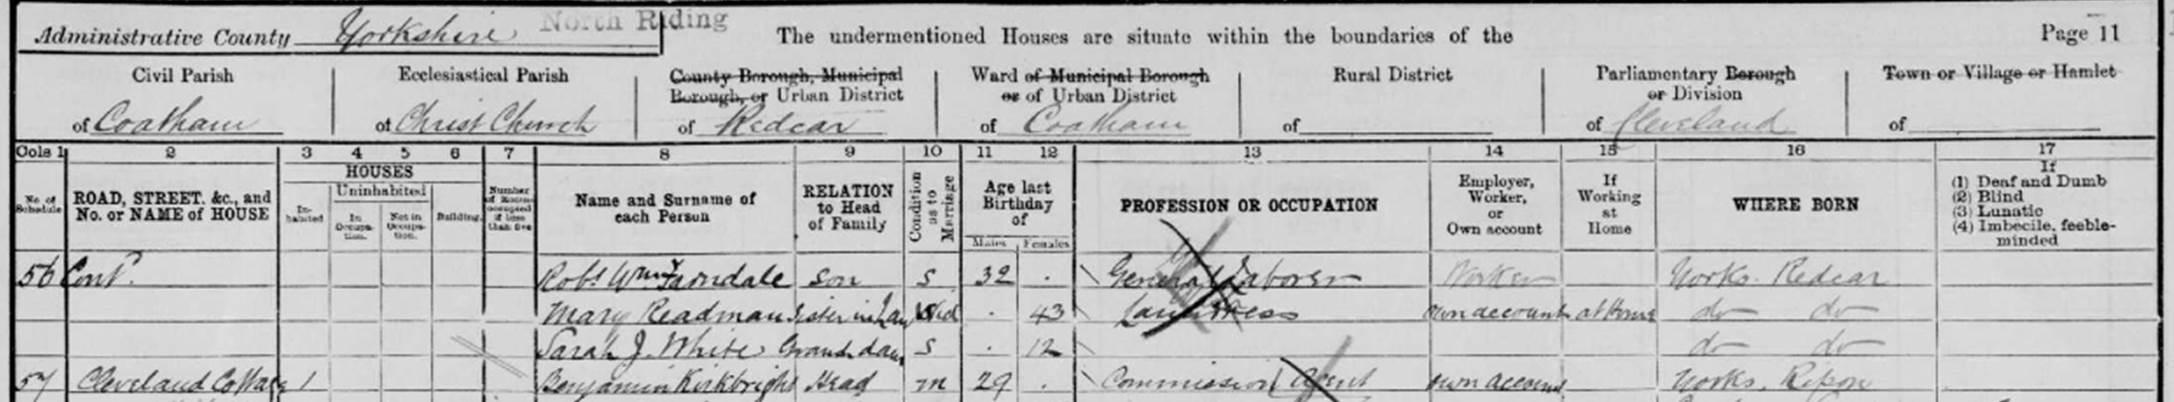 Administrative County Yorkshire North Riding The undermentioned Houses are situate within the boundaries of the Page 11
Civil Parish Ecclesiastical Parish County Borough, Municipal Borough, or Urban District Ward of Municipal Borough or of Urban District Rural District Parliamentary Borough or Division Town or Village or Hamlet
of Coatham of Christ Church of Redcar of Coatham of of Cleveland of
Cols 1 2 3 4 5 6 7 8 9 10 11 12 13 14 15 16 17
No. of Schedule
ROAD, STREET, &c., and No. or NAME of HOUSE
HOUSES
In-habited
Uninhabited
In Occupa-tion.
Not in Occupa-tion.
Building.
Number of Rooms occupied if less than five
Name and Surname of each Person
RELATION to Head of Family
Condition as to Marriage
Age last Birthday of
Males Females
PROFESSION OR OCCUPATION
Employer, Worker, or Own account
If Working at Home
WHERE BORN
If
(1) Deaf and Dumb
(2) Blind
(3) Lunatic
(4) Imbecile, feeble-minded
56 Cont. Robt Wm Farndale Son S 32 General Laborer Worker Yorks. Redcar
Mary Readman Sister in Law Wid 43 Laundress Own account at home do do
Sarah J. White Grand daur S 12 do do
57 Cleveland Cottage 1 Benjamin Kirkbright Head M 29 Commission Agent Own account Yorks. Ripon